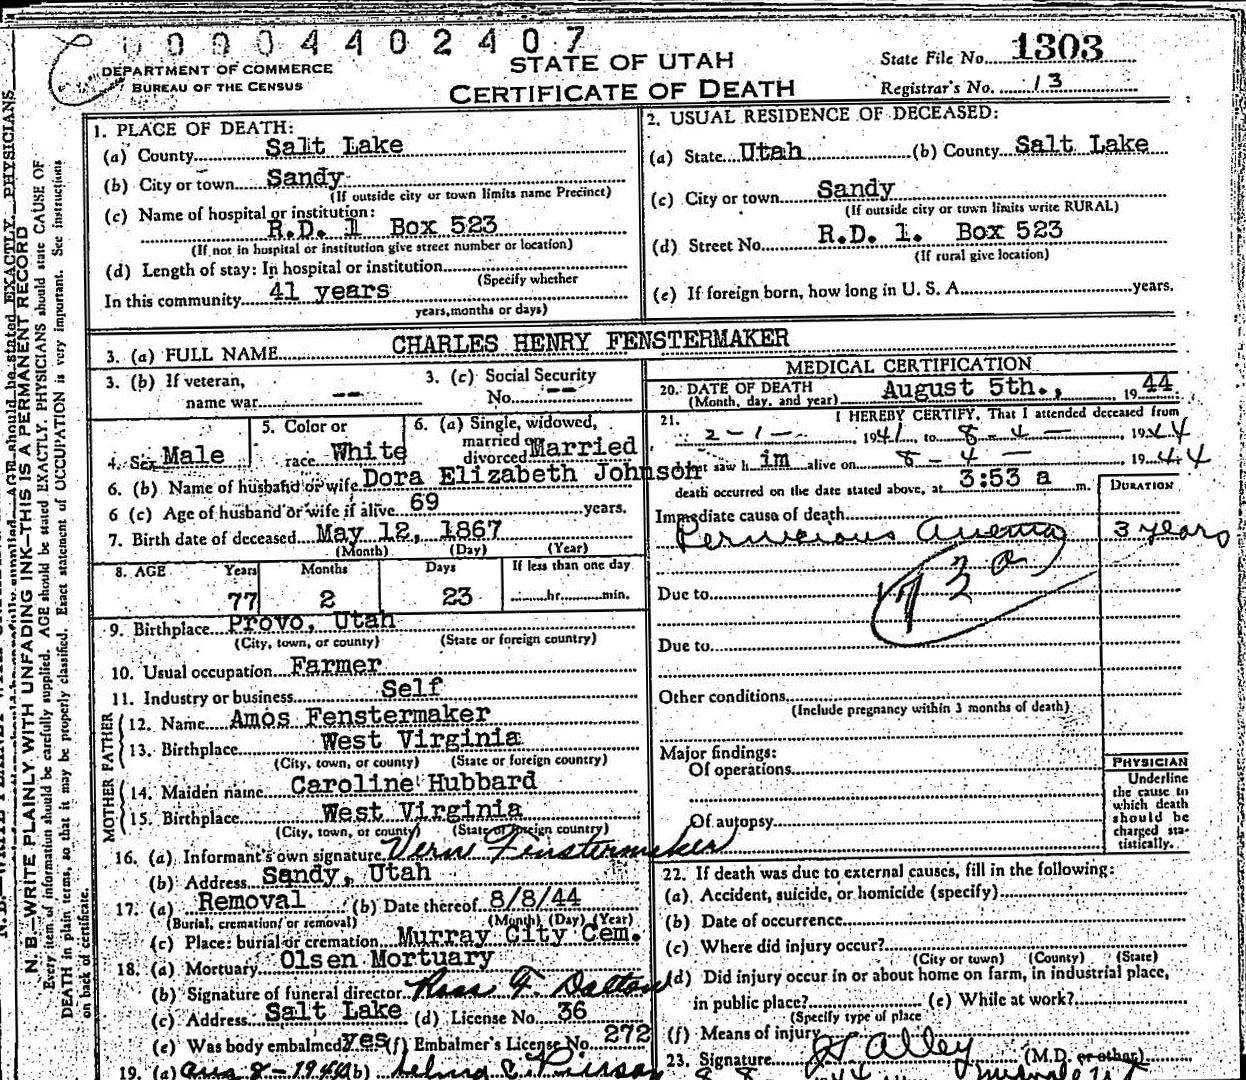 0 0 0 0 4 4 0 2 4 0 7
DEPARTMENT OF COMMERCE
BUREAU OF THE CENSUS
STATE OF UTAH
CERTIFICATE OF DEATH
State File No. 1303
Registrar's No. 13
N. B.—WRITE PLAINLY WITH UNFADING INK—THIS IS A PERMANENT RECORD
Every item of information should be carefully supplied. AGE should be stated EXACTLY. PHYSICIANS should state CAUSE OF
DEATH in plain terms, so that it may be properly classified. Exact statement of OCCUPATION is very important. See instructions
on back of certificate.
1. PLACE OF DEATH:
(a) County Salt Lake
(b) City or town Sandy
(If outside city or town limits name Precinct)
(c) Name of hospital or institution:
R.D. 1 Box 523
(If not in hospital or institution give street number or location)
(d) Length of stay: In hospital or institution
(Specify whether
In this community 41 years
years, months or days)
2. USUAL RESIDENCE OF DECEASED:
(a) State Utah (b) County Salt Lake
(c) City or town Sandy
(If outside city or town limits write RURAL)
(d) Street No. R.D. 1. Box 523
(If rural give location)
(e) If foreign born, how long in U. S. A. years.
3. (a) FULL NAME CHARLES HENRY FENSTERMAKER
3. (b) If veteran, name war --
3. (c) Social Security No. --
4. Sex Male
5. Color or race White
6. (a) Single, widowed, married or divorced Married
6. (b) Name of husband or wife Dora Elizabeth Johnson
6 (c) Age of husband or wife if alive 69 years.
7. Birth date of deceased May 12, 1867
(Month) (Day) (Year)
8. AGE Years Months Days If less than one day
77 2 23 hr. min.
9. Birthplace Provo, Utah
(City, town, or county) (State or foreign country)
10. Usual occupation Farmer
11. Industry or business Self
FATHER
12. Name Amos Fenstermaker
13. Birthplace West Virginia
(City, town, or county) (State or foreign country)
MOTHER
14. Maiden name Caroline Hubbard
15. Birthplace West Virginia
(City, town, or county) (State or foreign country)
16. (a) Informant's own signature Vern Fenstermaker
(b) Address Sandy, Utah
17. (a) Removal (b) Date thereof 8/8/44
(Burial, cremation, or removal) (Month) (Day) (Year)
(c) Place: burial or cremation Murray City Cem.
18. (a) Mortuary Olsen Mortuary
(b) Signature of funeral director
(c) Address Salt Lake (d) License No. 36
(e) Was body embalmed? yes (f) Embalmer's License No. 272
19. (a) Aug 8-1944 (b)
MEDICAL CERTIFICATION
20. DATE OF DEATH August 5th., 1944
(Month, day, and year)
21. I HEREBY CERTIFY, That I attended deceased from
2-1-, 1941, to 8-4-, 1944
last saw him alive on 8-4-, 1944
death occurred on the date stated above, at 3:53 a m.
DURATION
Immediate cause of death
Pernicious Anemia 3 years
73a
Due to
Due to
Other conditions
(Include pregnancy within 3 months of death)
Major findings:
Of operations
Of autopsy
PHYSICIAN
Underline
the cause to
which death
should be
charged sta-
tistically.
22. If death was due to external causes, fill in the following:
(a) Accident, suicide, or homicide (specify)
(b) Date of occurrence
(c) Where did injury occur?
(City or town) (County) (State)
(d) Did injury occur in or about home on farm, in industrial place,
in public place? (e) While at work?
(Specify type of place
(f) Means of injury
23. Signature Alley (M.D. or other)